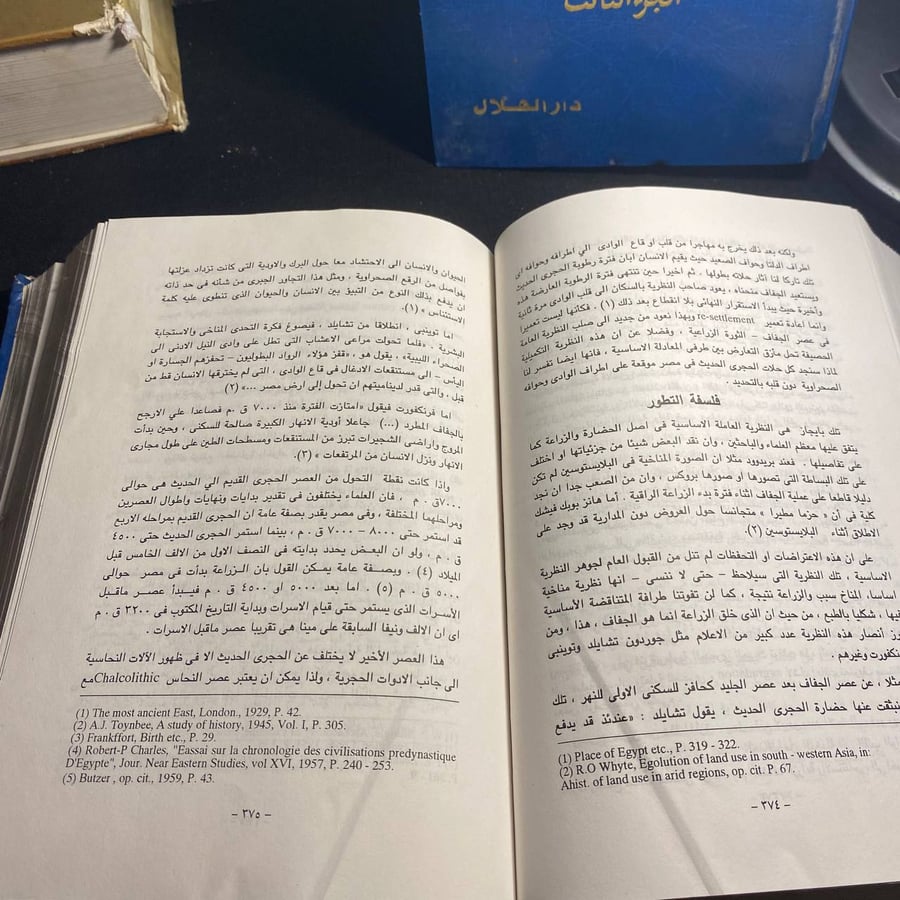 الجزء الثالث
دار الهلال
ولكنه بعد ذلك يخرج به مهاجرا من قلب او قاع الوادى الي اطرافه وحوافه اى
اطراف الدلتا وحواف الصعيد حيث يقيم الانسان ابان فترة رطوبة الحجرى الحديث
تلك تاركا لنا آثار حلاته بطولها ، ثم اخيرا حين تنتهى فترة الرطوبة العارضة هذه
ويستعيد الجفاف منحناه ، يعود صاحب النظرية بالسكان الى قلب الوادى مرة ثانية
وأخيرة حيث يبدأ الاستقرار النهائى بلا انقطاع بعد ذلك (١) . فكأنها ليست تعميرا
وانما اعادة تعمير re-settlement وبهذا نعود من جديد الى صلب النظرية العامة
فى عصر الجفاف – الثورة الزراعية ، وفضلا عن ان هذه النظرية التكميلية
الحصيفة تحل مأزق التعارض بين طرفى المعادلة الاساسية ، فانها ايضا تفسر لنا
لماذا سنجد كل حلات الحجرى الحديث فى مصر موقعة على اطراف الوادى وحوافه
الصحراوية دون قلبه بالتحديد .
فلسفة التطور
تلك بايجاز هى النظرية العاملة الاساسية فى اصل الحضارة والزراعة كما
يتفق عليها معظم العلماء والباحثين ، وان نقد البعض شيئا من جزئياتها او اختلف
على تفاصيلها . فعند بريدوود مثلا ان الصورة المناخية فى البلايستوسين لم تكن
على تلك البساطة التى تصورها او صورها بروكس ، وان من الصعب جدا ان نجد
دليلا قاطعا على عملية الجفاف اثناء فترة بدء الزراعة الراقية . أما هانز بوبك فيشك
كلية فى أن « حزما مطيرا » متجانسا حول العروض دون المدارية قد وجد على
الاطلاق أثناء البلايستوسين (٢).
على ان هذه الاعتراضات او التحفظات لم تنل من القبول العام لجوهر النظرية
الاساسية ، تلك النظرية التى سيلاحظ – حتى لا ننسى – انها نظرية مناخية
اساسا، المناخ سبب والزراعة نتيجة ، كما لن تفوتنا طرافة المتناقضة الأساسية
فيها ، شكليا بالطبع ، من حيث ان الذى خلق الزراعة انما هو الجفاف ، هذا ، ومن
أنصار هذه النظرية عدد كبير من الاعلام مثل جوردون تشايلد وتوينبى
وغيرهم .
مثلا ، عن عصر الجفاف بعد عصر الجليد كحافز للسكنى الاولى للنهر ، تلك
عنها حضارة الحجرى الحديث ، يقول تشايلد : «عندئذ قد يدفع
(1) Place of Egypt etc., P. 319 - 322.
(2) R.O Whyte, Egolution of land use in south - western Asia, in:
Ahist. of land use in arid regions, op. cit. P. 67.
– ٣٧٤ –
الحيوان والانسان الى الاحتشاد معا حول البرك والاودية التى كانت تزداد عزلتها
بفواصل من الرقع الصحراوية ، ومثل هذا التجاور الجبرى من شأنه فى حد ذاته
ان يدفع بذلك النوع من التبيؤ بين الانسان والحيوان الذى تنطوى عليه كلمة
الاستئناس » (١).
اما توينبى ، انطلاقا من تشايلد ، فيصوغ فكرة التحدى المناخى والاستجابة
البشرية . «فلما تحولت مراعى الاعشاب التى تطل على وادى النيل الادنى الى
الصحراء الليبية» ، يقول هو ، «قفز هؤلاء الرواد البطوليون – تحفزهم الجسارة او
اليأس – الى مستنقعات الادغال فى قاع الوادى ، التى لم يخترقها الانسان قط من
قبل ، والتى قدر لديناميتهم ان تحول إلى ارض مصر ...» (٢)
اما فرنكفورت فيقول «امتازت الفترة منذ ٧٠٠٠ ق .م فصاعدا علي الارجح
بالجفاف المطرد (...) جاعلا أودية الانهار الكبيرة صالحة للسكنى ، وحين بدأت
المروج واراضى الشجيرات تبرز من المستنقعات ومسطحات الطين على طول مجارى
الانهار ونزل الانسان من المرتفعات » (٣).
واذا كانت نقطة التحول من العصر الحجرى القديم الي الحديث هى حوالى
٧٠٠٠ق . م ، فان العلماء يختلفون فى تقدير بدايات ونهايات واطوال العصرين
ومراحلهما المختلفة ، وفى مصر يقدر بصفة عامة ان الحجرى القديم بمراحله الاربع
قد استمر حتى ٨٠٠٠ – ٧٠٠٠ ق . م ، بينما استمر الحجرى الحديث حتى ٤٥٠٠
ق . م ، ولو ان البعض يحدد بدايته فى النصف الاول من الالف الخامس قبل
الميلاد (٤) . وبصفة عامة يمكن القول بان الزراعة بدأت فى مصر حوالى
٥٠٠٠ ق . م (٥) . اما بعد ٥٠٠٠ او ٤٥٠٠ ق . م فيبدأ عصر ماقبل
الأسرات الذى يستمر حتى قيام الاسرات وبداية التاريخ المكتوب فى ٣٢٠٠ ق . م
اى ان الالف ونيفا السابقة على مينا هى تقريبا عصر ماقبل الاسرات .
هذا العصر الأخير لا يختلف عن الحجرى الحديث الا فى ظهور الآلات النحاسية
الى جانب الادوات الحجرية ، ولذا يمكن ان يعتبر عصر النحاس Chalcolithic مع
(1) The most ancient East, London., 1929, P. 42.
(2) A.J. Toynbee, A study of history, 1945, Vol. I, P. 305.
(3) Frankffort, Birth etc., P. 29.
(4) Robert-P Charles, "Eassai sur la chronologie des civilisations predynastique
D'Egypte", Jour. Near Eastern Studies, vol XVI, 1957, P. 240 - 253.
(5) Butzer , op. cit., 1959, P. 43.
– ٣٧٥ –